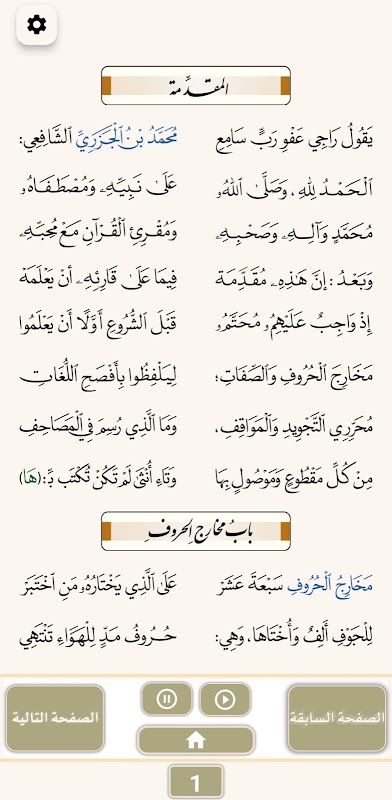 المقدِّمة
يَقُولُ رَاجِي عَفْوِ رَبٍّ سَامِعِ مُحَمَّدُ بْنُ الْجَزَرِيِّ الشَّافِعِي:
الْحَمْدُ لِلهِ ، وَصَلَّى اللهُ عَلَى نَبِيِّهِ وَمُصْطَفَاهُ
مُحَمَّدٍ وَآلِهِ وَصَحْبِهِ وَمُقْرِئِ الْقُرْآنِ مَعْ مُحِبِّهِ
وَبَعْدُ : إِنَّ هَذِهِ مُقَدِّمَة فِيمَا عَلَى قَارِئِهِ أَنْ يَعْلَمَهْ
إِذْ وَاجِبٌ عَلَيْهِمُ مُحَتَّمُ قَبْلَ الشُّرُوعِ أَوَّلًا أَنْ يَعْلَمُوا
مَخَارِجَ الْحُرُوفِ وَالصِّفَاتِ؛ لِيَلْفِظُوا بِأَفْصَحِ اللُّغَاتِ
مُحَرِّرِي التَّجْوِيدِ وَالْمَوَاقِفِ، وَمَا الَّذِي رُسِمَ فِي الْمَصَاحِفِ
مِنْ كُلِّ مَقْطُوعٍ وَمَوْصُولٍ بِهَا وَتَاءِ أُنْثَى لَمْ تَكُنْ تُكْتَب بِّ:(هَا)
بابُ مخارجِ الحروفِ
مَخَارِجُ الْحُرُوفِ سَبْعَةَ عَشَرْ عَلَى الَّذِي يَخْتَارُهُ مَنِ اخْتَبَرْ
لِلْجَوْفِ أَلِفٌ وَأُخْتَاهَا، وَهِيْ: حُرُوفُ مَدٍّ لِلْهَوَاءِ تَنْتَهِي
الصفحة السابقة
الصفحة التالية
1